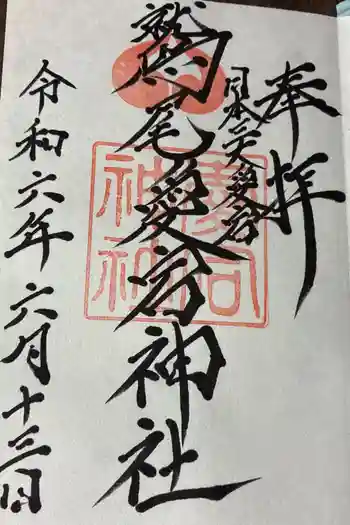 奉拝
日本三大愛宕
鷲尾愛宕神社
令和六年六月十三日
愛宕
神社